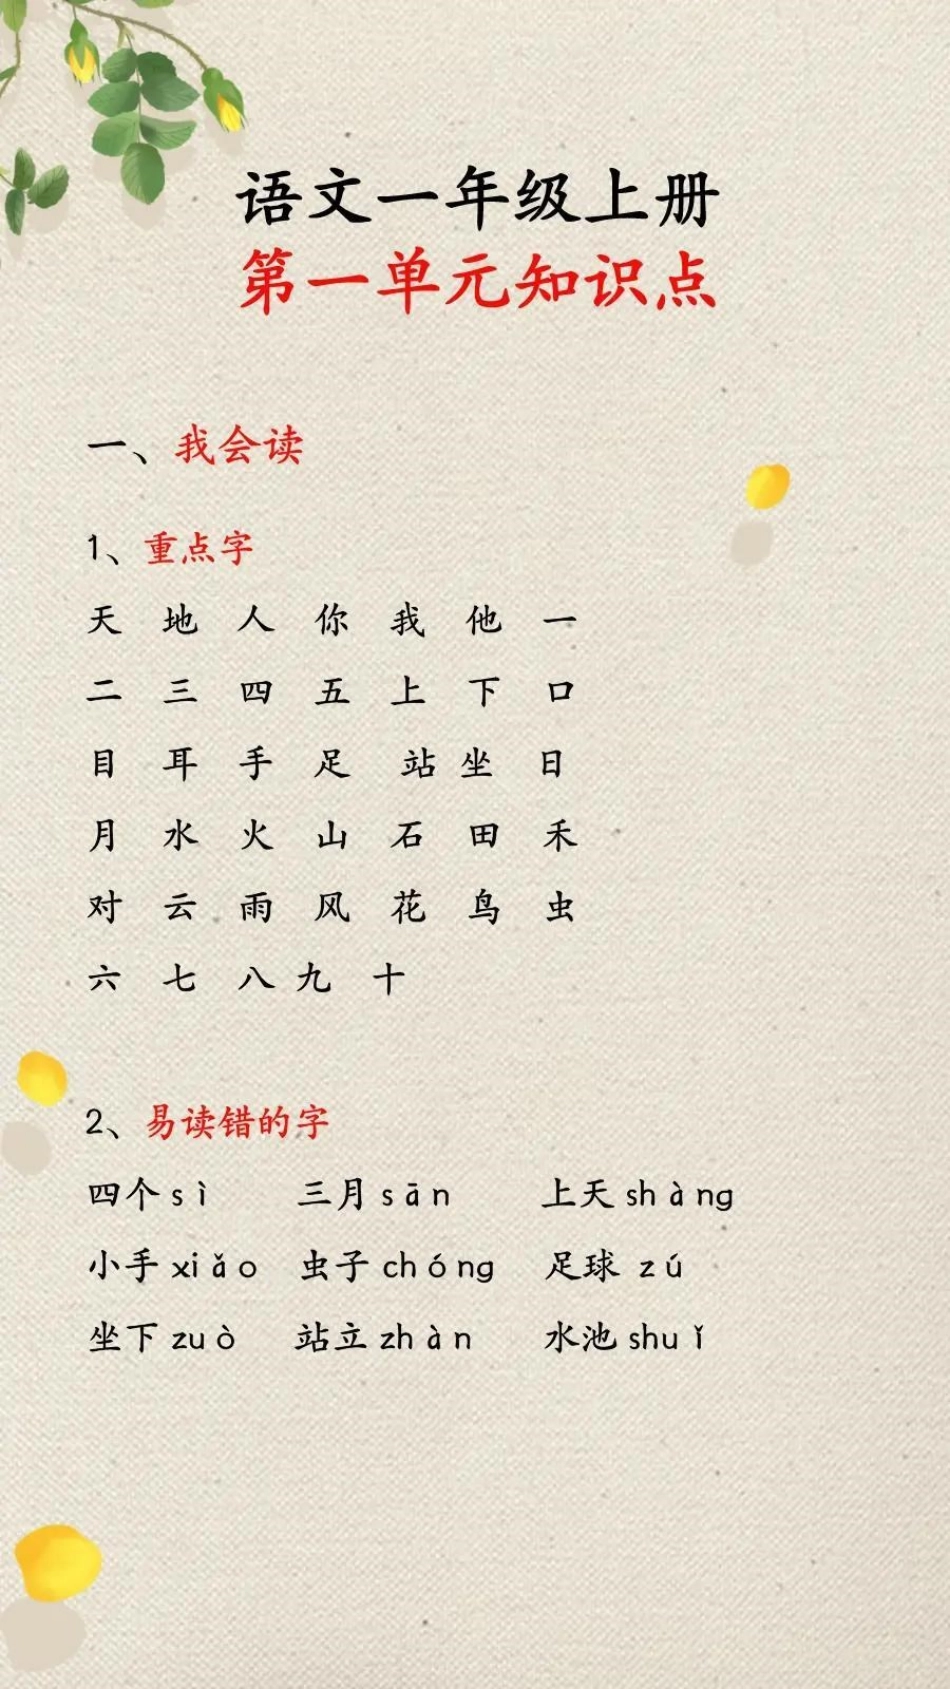 语文一年级上册
第一单元知识点
一、我会读
1、重点字
天 地 人 你 我 他 一
二 三 四 五 上 下 口
目 耳 手 足 站 坐 日
月 水 火 山 石 田 禾
对 云 雨 风 花 鸟 虫
六 七 八 九 十
2、易读错的字
四个 sì 三月 sān 上天 shàng
小手 xiǎo 虫子 chóng 足球 zú
坐下 zuò 站立 zhàn 水池 shuǐ